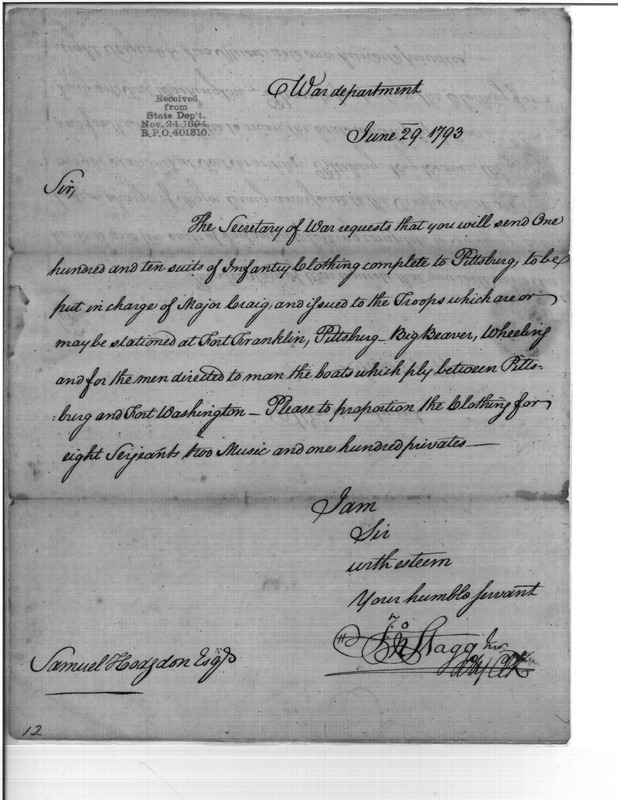 Received
from
State Dep't.
Nov. 24. 1894
R.P.O. 401310.
War department
June 29. 1793
Sir,
The Secretary of War requests that you will send One
hundred and ten suits of Infantry Clothing complete to Pittsburg, to be
put in charge of Major Craig, and issued to the Troops which are or
may be stationed at Fort Franklin, Pittsburg - Big Beaver, Wheeling
and for the men directed to man the boats which ply between Pitts-
:burg and Fort Washington — Please to proportion the Clothing for
eight Serjeants two Music and one hundred privates —
I am
Sir
with esteem
Your humble servant
Jno Stagg Jnr
Samuel Hodgdon Esqr
12